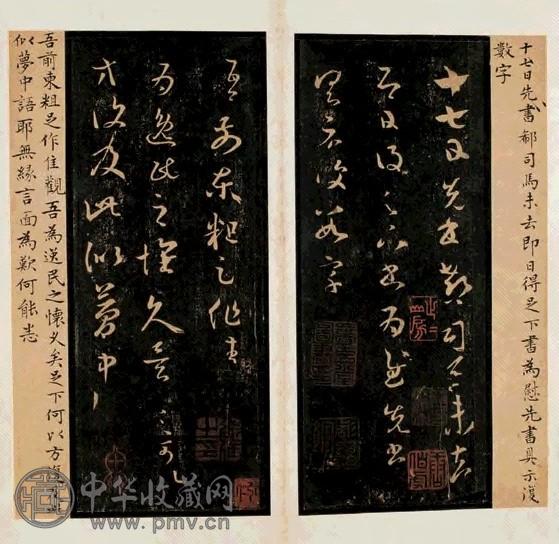 十七日先書郗司馬未去即日得足下書為慰先書具示復
數字
十七日先書郗司馬未去
即日得足下書為慰先書
具示復數字
吾前東粗足作佳
為逸民之懷久矣足下何以
方復及此似夢中
吾前東粗足作佳觀吾為逸民之懷久矣足下何以方復
似夢中語耶無緣言面為歎何能悉
中华收藏网
www.pmv.cn